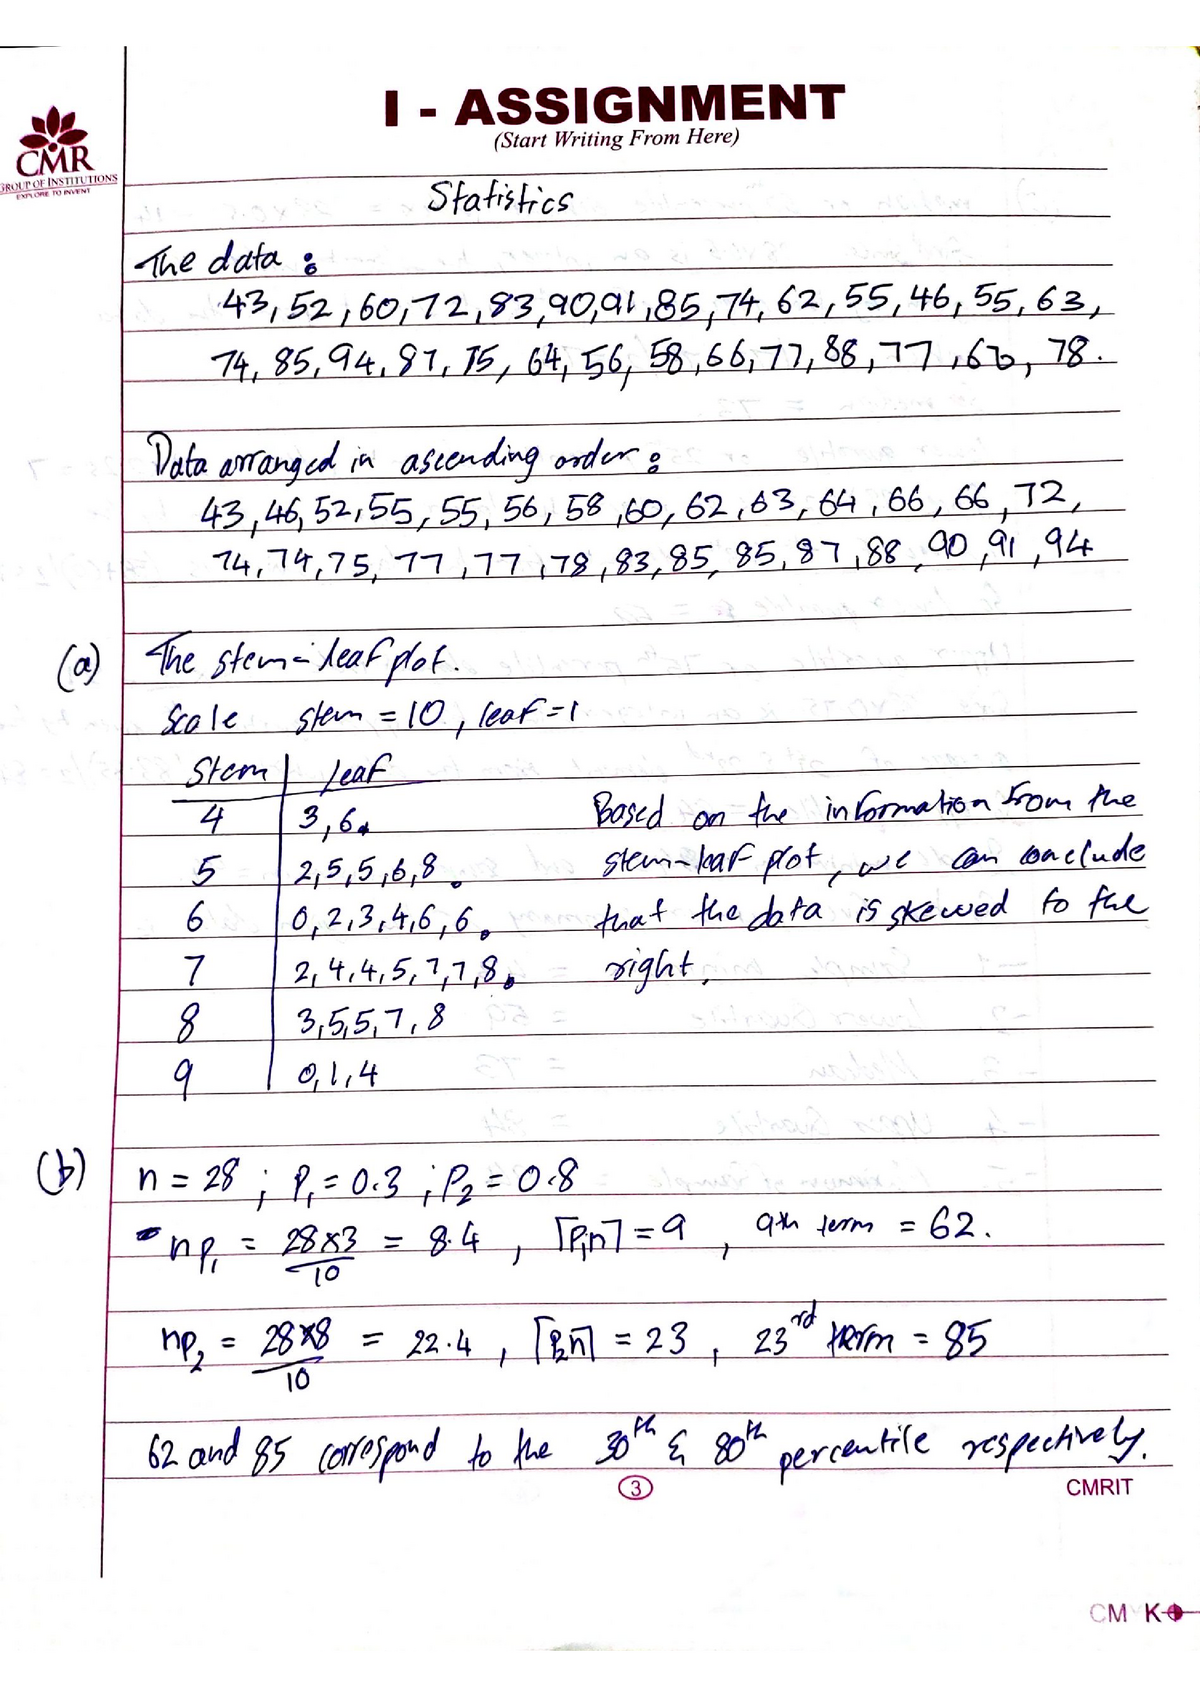 I - ASSIGNMENT
(Start Writing From Here)
CMR
GROUP OF INSTITUTIONS
EXPLORE TO INVENT
Statistics
The data :
43, 52, 60, 72, 83, 90, 91, 85, 74, 62, 55, 46, 55, 63,
74, 85, 94, 87, 75, 64, 56, 58, 66, 77, 88, 77, 66, 78.
Data arranged in ascending order :
43, 46, 52, 55, 55, 56, 58, 60, 62, 63, 64, 66, 66, 72,
74, 74, 75, 77, 77, 78, 83, 85, 85, 87, 88, 90, 91, 94
(a) The stem-leaf plot.
Scale stem = 10, leaf = 1
Stem | leaf
4 | 3, 6.
5 | 2, 5, 5, 6, 8.
6 | 0, 2, 3, 4, 6, 6.
7 | 2, 4, 4, 5, 7, 7, 8.
8 | 3, 5, 5, 7, 8
9 | 0, 1, 4
Based on the information from the
stem-leaf plot, we can conclude
that the data is skewed to the
right.
(b) n = 28 ; P₁ = 0.3 ; P₂ = 0.8
np₁ = 28×3/10 = 8.4, ⌈P₁n⌉ = 9, 9th term = 62.
np₂ = 28×8/10 = 22.4, ⌈P₂n⌉ = 23, 23rd term = 85
62 and 85 correspond to the 30th & 80th percentile respectively.
3
CMRIT
CM K